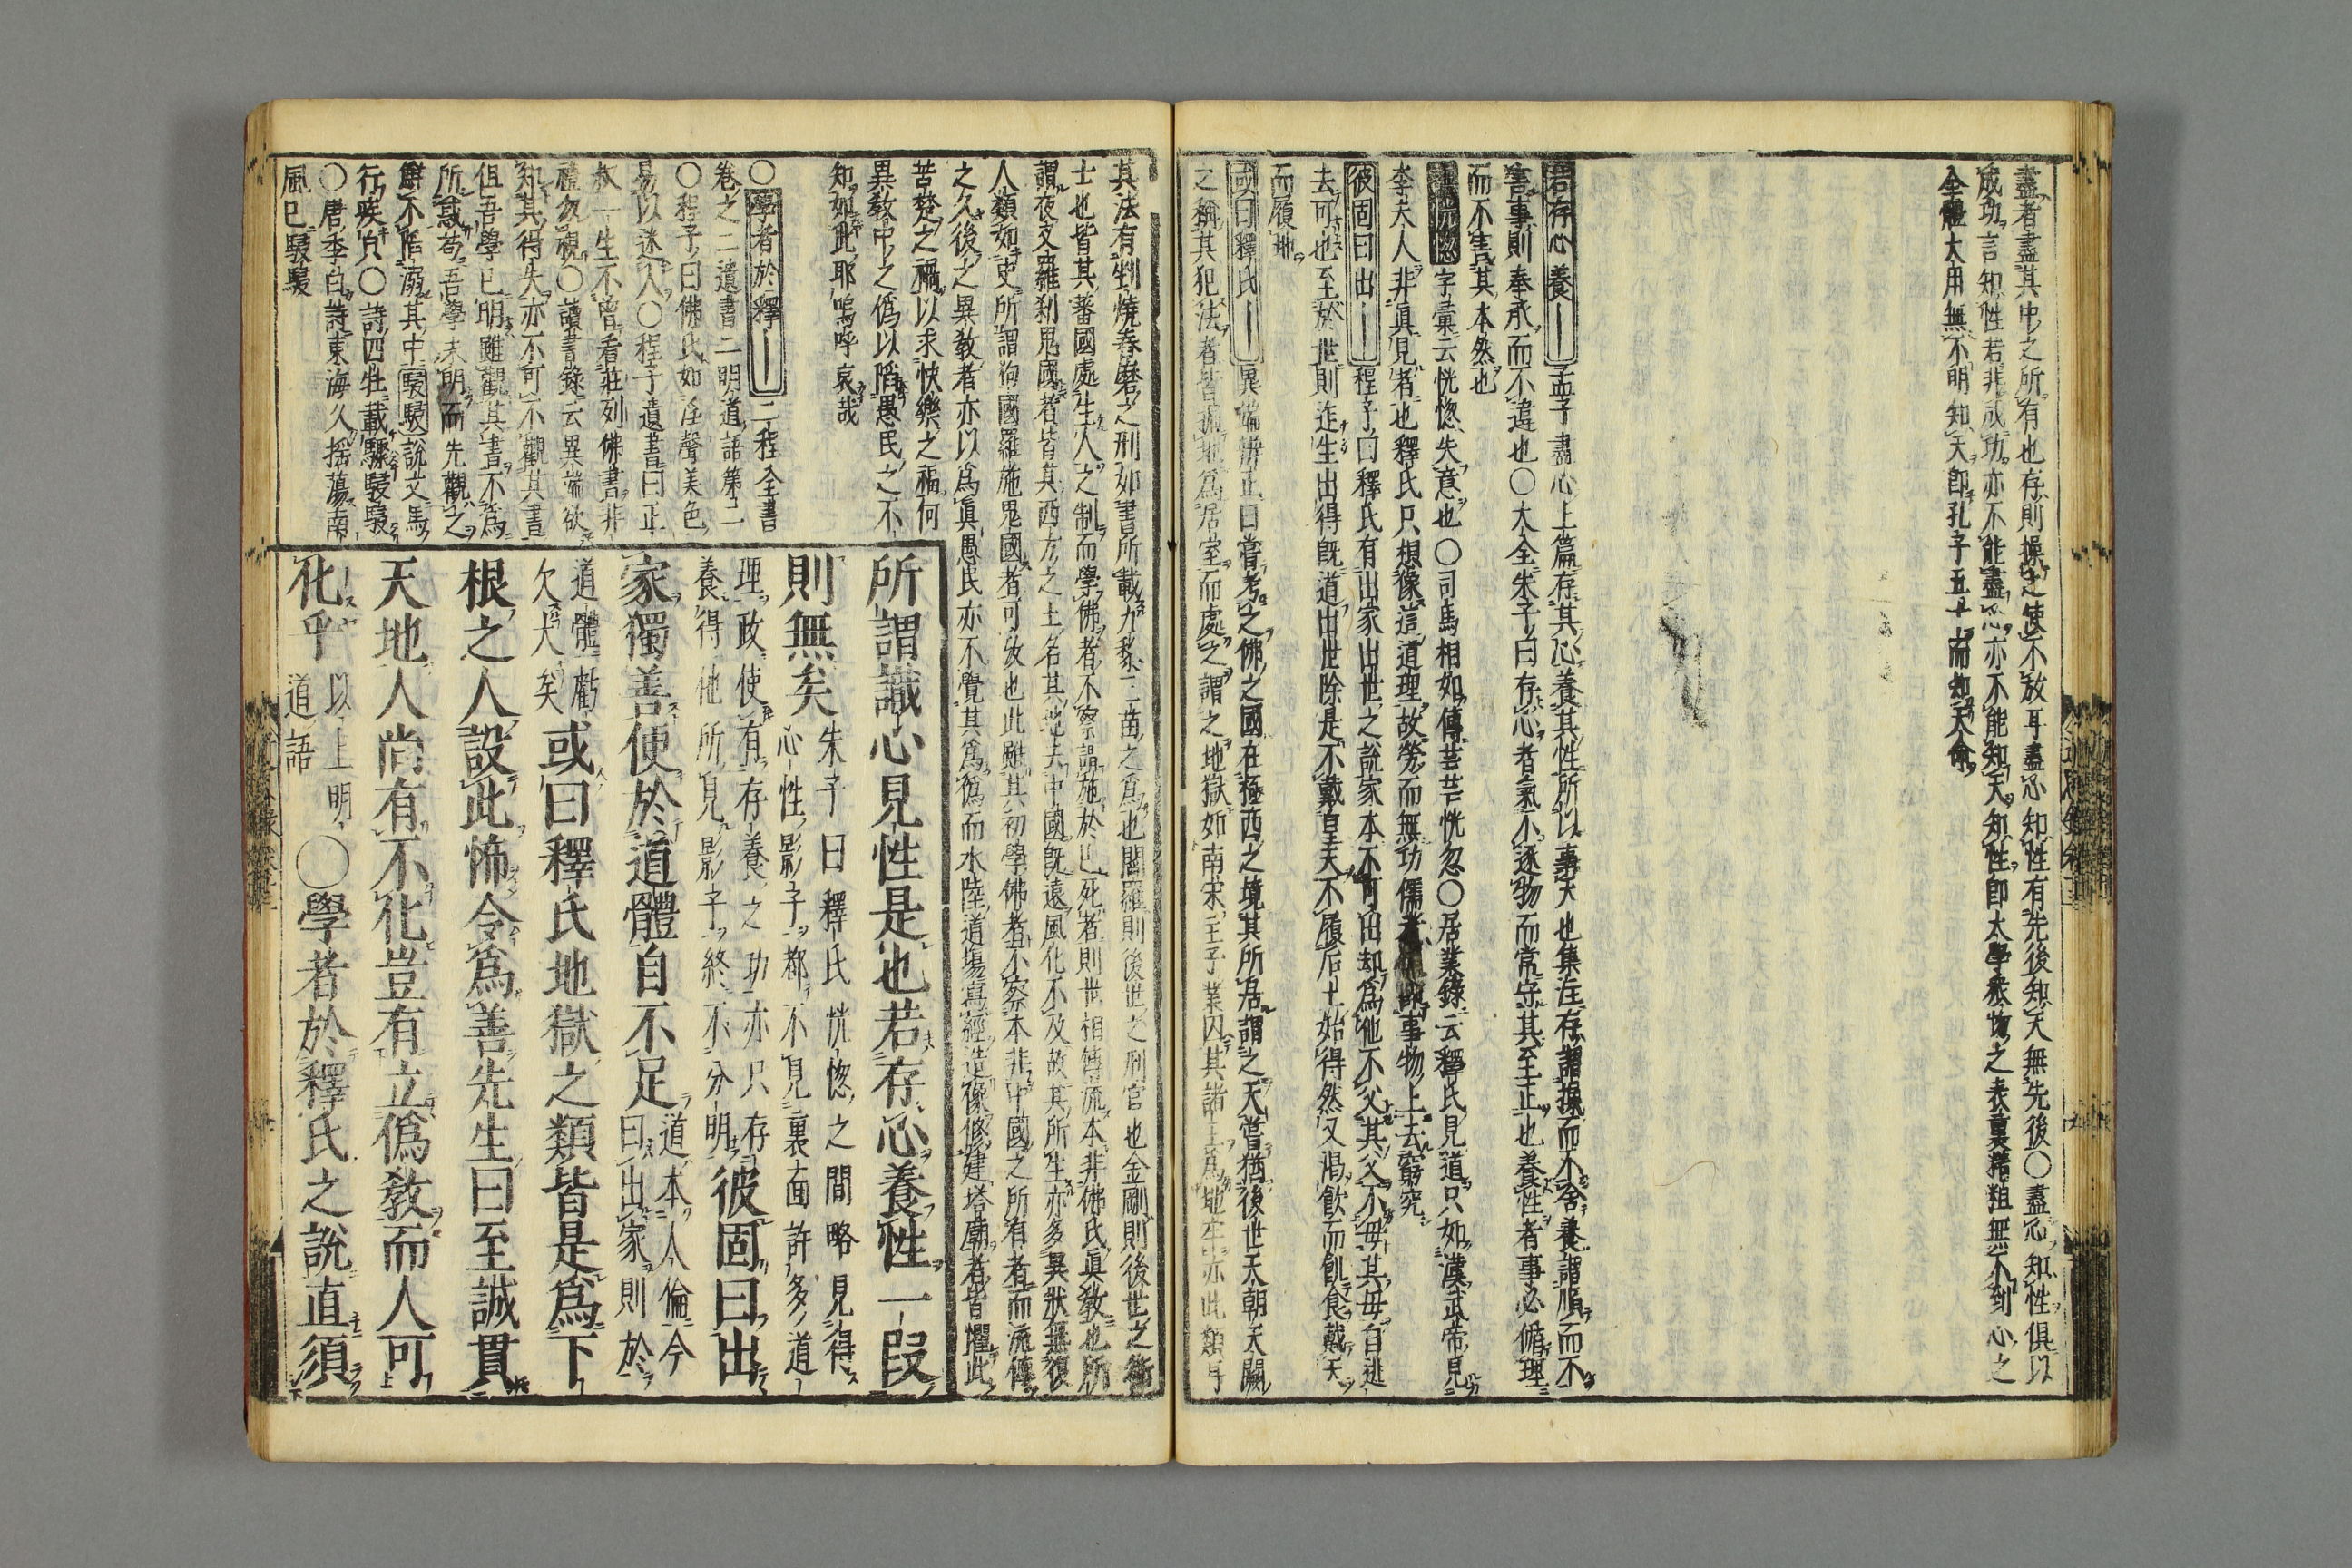 盡者盡其中之所有也存則操之使不放耳盡心知性有先後知天無先後〇盡心知性俱以
成功言知性若非成功亦不能盡心亦不能知天知性即大學衆物之表裏精粗無不到心之
全體大用無不明知天即孔子五十而知天命
若存心養 孟子盡心上篇存其心養其性所以事天也集注存謂操而不舍養謂順而不
害事則奉承而不違也〇大全朱子曰存心者氣不逐物而常守其至正也養性者事必循理
而不害其本然也
恍惚 字彙云恍惚失意也〇司馬相如傳芒芒恍忽〇居業錄云釋氏見道只如漢武帝見
李夫人非眞見者也釋氏只想像這道理故勞而無功儒者便即事物上去窮究
彼固曰出 程子曰釋氏有出家出世之說家本不可出却爲他不父其父不母其母自逃
去可也至於世則迯生出得既道出世除是不戴皇天不履后土始得然又渴飲而飢食戴天
而履地
或曰釋氏 異端辨正曰嘗考之佛之國在極西之境其所居謂之天嘗猶後世天朝天闕
之稱其犯法者皆掘地爲居室而處之謂之地獄如南宋主子業囚其諸王爲地牢亦此類耳
其法有剉燒舂磨之刑如書所載九黎三苗之爲也閻羅則後世之刑官也金剛則後世之衛
士也皆其蕃國處生人之制而學佛者不察謂施於已死者則世相傳流本非佛氏眞教也所
謂夜叉羅刹鬼國者皆其西方之土名其地去中國既遠風化不及故其所生亦多異狀無復
人類如史所謂狗國羅施鬼國者可攷也此雖其初學佛者不察本非中國之所有者而流傳
之久後之異教者亦以爲眞愚民亦不覺其爲僞而水陸道場寫經造像修建塔廟者皆懼此
苦楚之禍以求快樂之福何
異教中之僞以陷愚民之不
知如此耶嗚呼哀哉
〇學者於釋 二程全書
卷之二遺書二明道語第二
〇程子曰佛氏如淫聲美色
易以迷人〇程子遺書曰正
叔一生不曾看莊列佛書非
禮勿視〇讀書錄云異端欲
知其得失亦不可不觀其書
但吾學已明雖觀其書不爲
所惑苟吾學未明而先觀之
鮮不陷溺其中 駸駸 說文馬
行疾皃〇詩四牡載驟駸駸
〇唐李白詩東海久搖蕩南
風已駸駸
所謂識心見性是也若存心養性一段
則無矣 朱子曰釋氏恍惚之間略見得
心性影子都不見裏面許多道
理政使有存養之功亦只存
養得他所見影子終不分明 彼固曰出
家獨善便於道體自不足 道本人倫今
曰出家則於
道體虧
欠大矣 或曰釋氏地獄之類皆是爲下
根之人設此怖令爲善先生曰至誠貫
天地人尚有不化豈有立僞教而人可
化乎 以上明
道語 〇學者於釋氏之說直須